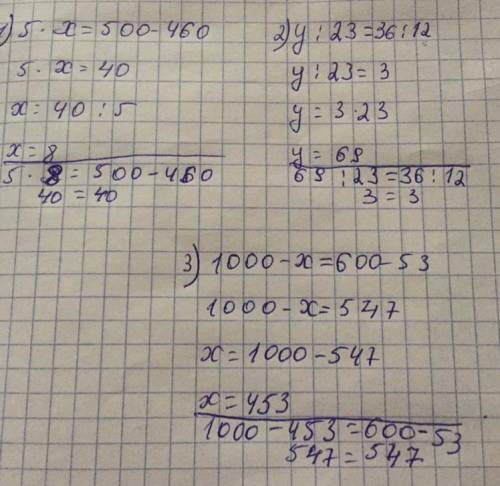 1) 5 · x = 500 - 460
5 · x = 40
x = 40 : 5
x = 8
5 · 8 = 500 - 460
40 = 40
2) y : 23 = 36 : 12
y : 23 = 3
y = 3 · 23
y = 69
69 : 23 = 36 : 12
3 = 3
3) 1000 - x = 600 - 53
1000 - x = 547
x = 1000 - 547
x = 453
1000 - 453 = 600 - 53
547 = 547